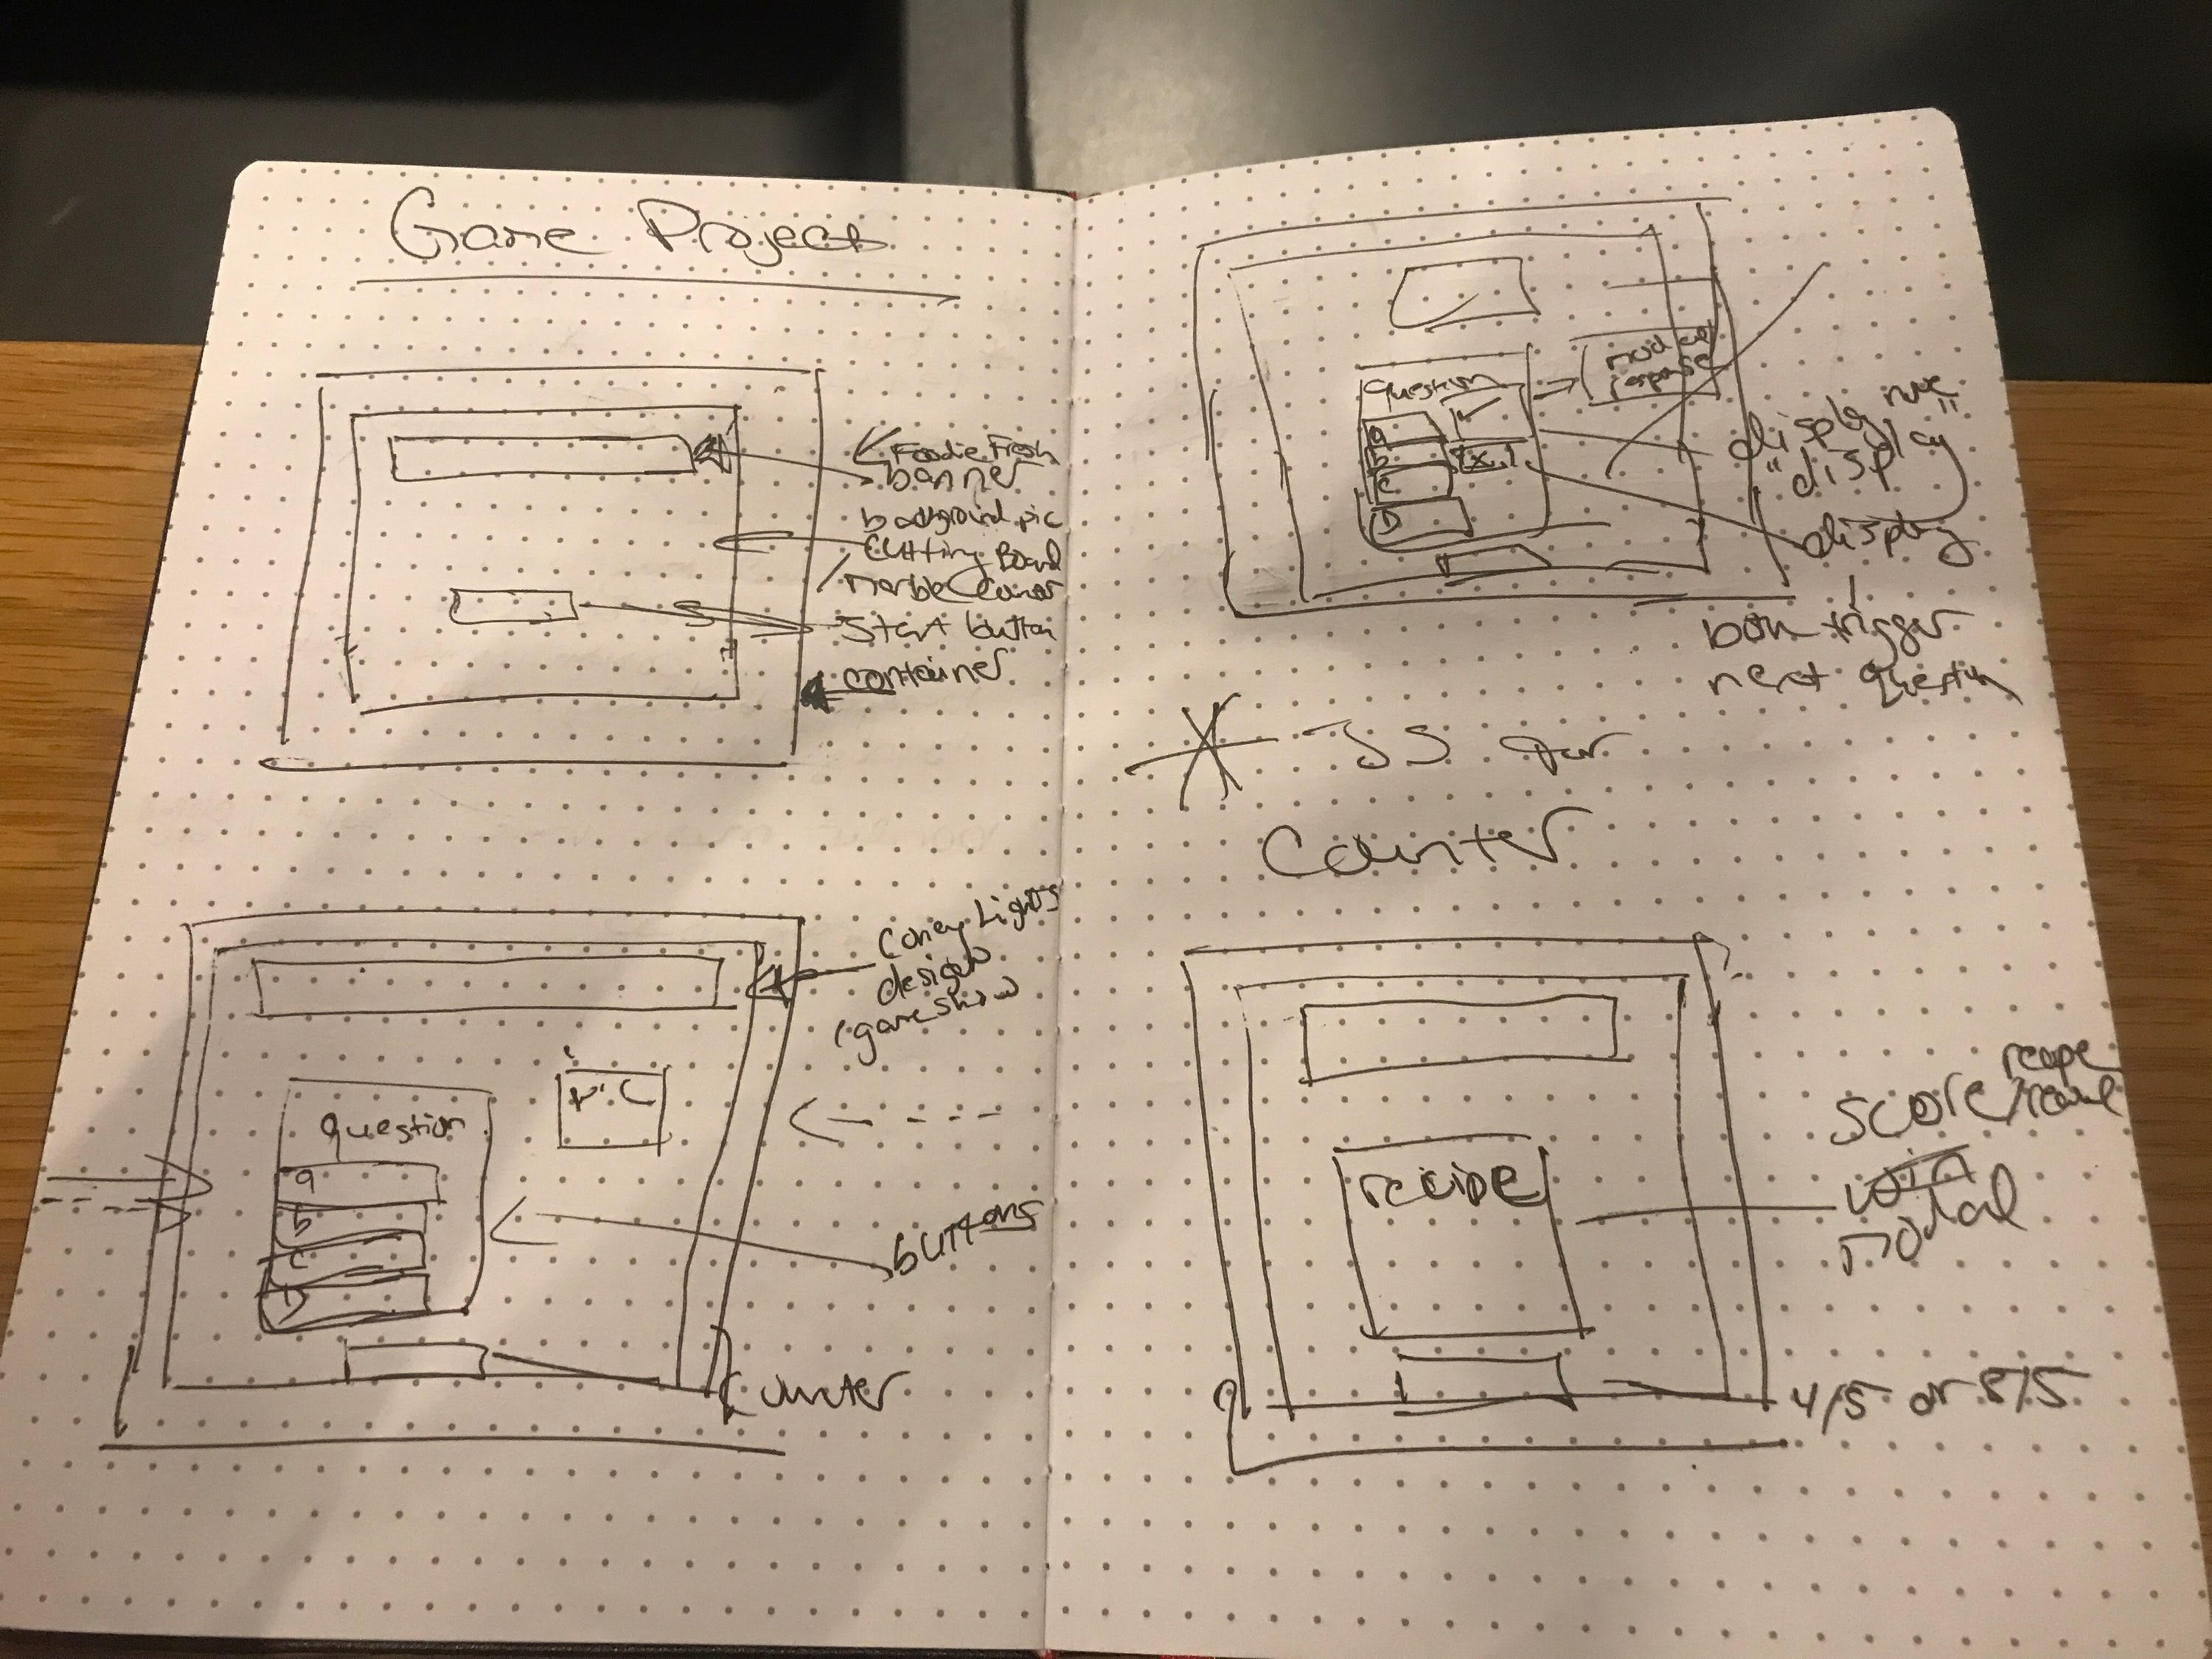 Game Project
Foodie Fresh
banner
background pic
Cutting Board
Start button
container
Coney Lights
design
(game show
question
a
b
c
D
pic
buttons
Counter
question
a
b
c
D
modal
response
display none
"display"
display
both trigger
next question
JS for
Counter
recipe
score/
modal
recipe
4/5 or